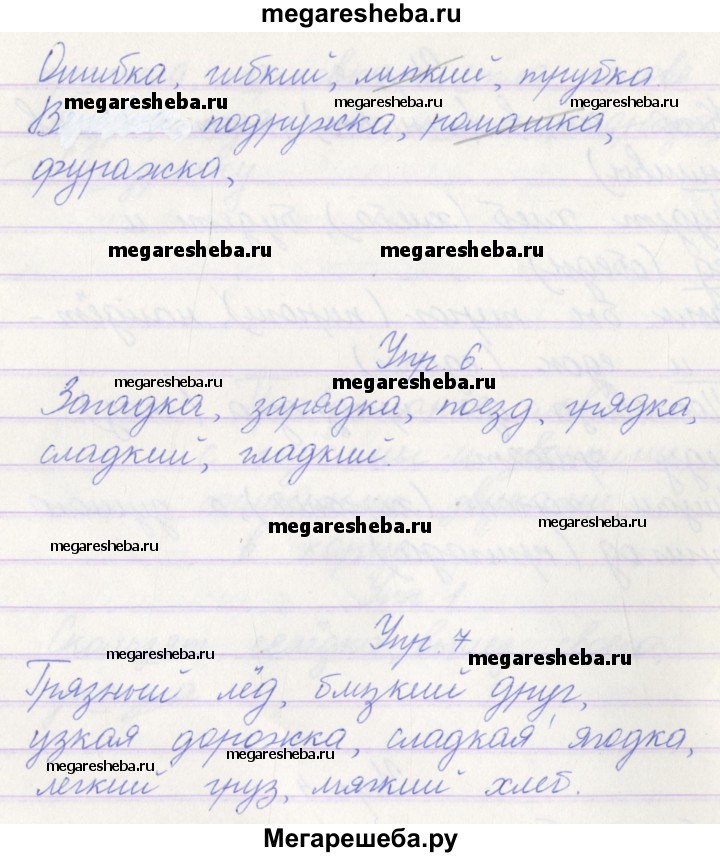 megaresheba.ru
Ошибка, гибкий, липкий, трубка.
megaresheba.ru megaresheba.ru megaresheba.ru
В подружка, ромашка,
фуражка,
megaresheba.ru megaresheba.ru
Упр. 6
megaresheba.ru megaresheba.ru
Загадка, зарядка, поезд, грядка,
сладкий, гладкий.
megaresheba.ru megaresheba.ru
megaresheba.ru
Упр. 7
megaresheba.ru megaresheba.ru
Грязный лёд, близкий друг,
узкая дорожка, сладкая ягодка,
megaresheba.ru megaresheba.ru
лёгкий груз, мягкий хлеб.
megaresheba.ru megaresheba.ru
Мегарешеба.ру